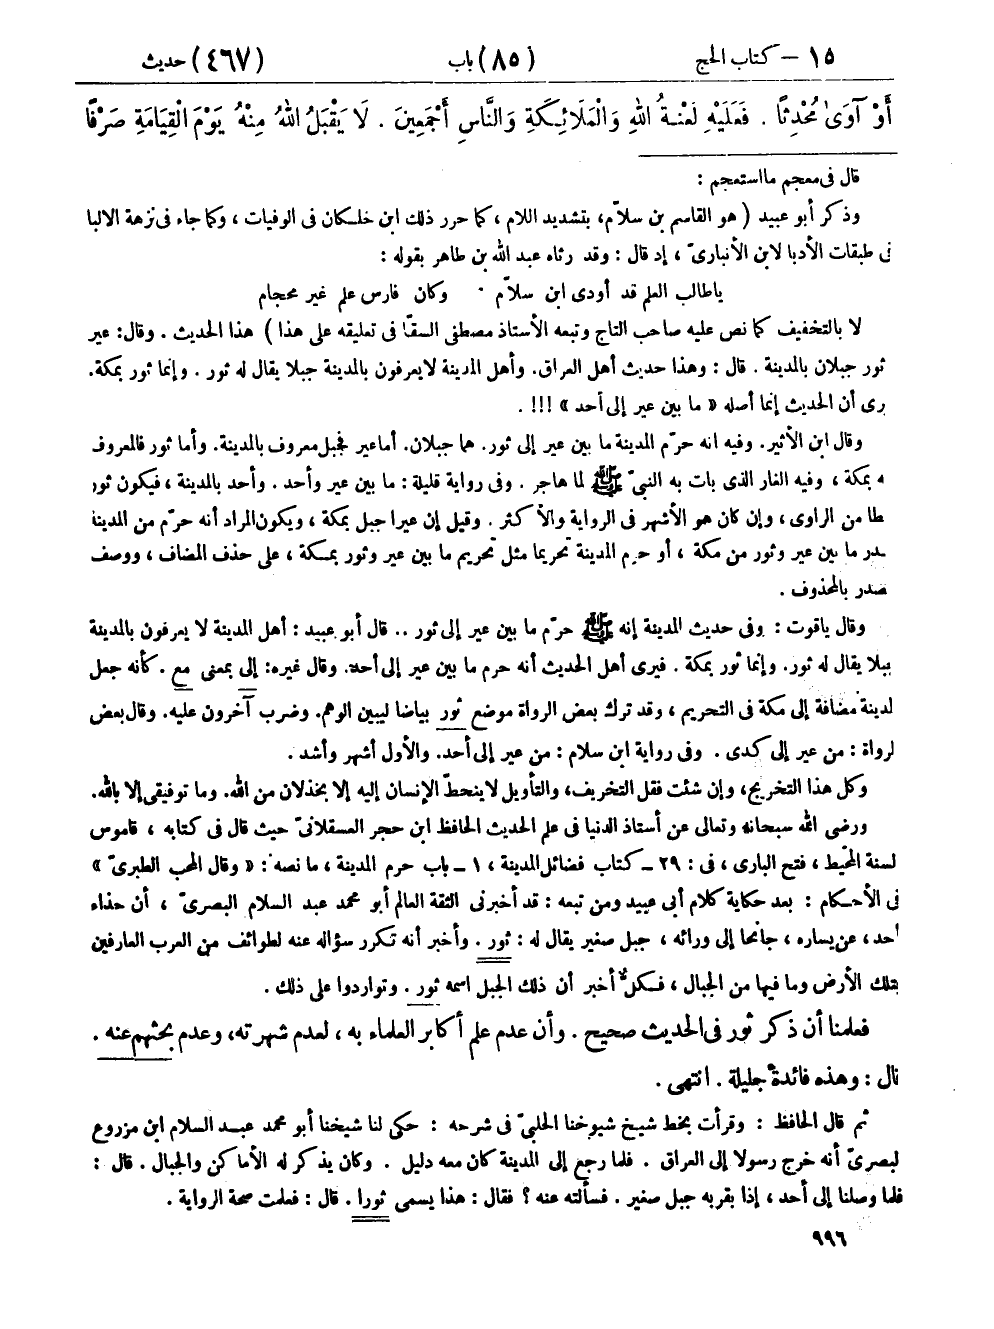 ١٥ – كتاب الحج (٨٥) باب (٤٦٧) حديث
أَوْ آوَىٰ مُحْدِثًا . فَعَلَيْهِ لَعْنَةُ اللهِ وَالْمَلَائِكَةِ وَالنَّاسِ أَجْمَعِينَ . لَا يَقْبَلُ اللهُ مِنْهُ يَوْمَ الْقِيَامَةِ صَرْفًا
قال فى معجم ما استعجم :
وذكر أبو عبيد ( هو القاسم بن سلاّم، بتشديد اللام ، كما حرر ذلك ابن خلكان فى الوفيات ، وكما جاء فى نزهة الالبا
فى طبقات الأدبا لابن الأنبارىّ ، إد قال : وقد رثاه عبد الله بن طاهر بقوله :
ياطالب العلم قد أودى ابن سلاّم . وكان فارس علم غير محجام
لا بالتخفيف كما نص عليه صاحب التاج وتبعه الأستاذ مصطفى السقا فى تعليقه على هذا ) هذا الحديث . وقال: عير
ثور جبلان بالمدينة . قال : وهذا حديث أهل العراق. وأهل المدينة لايعرفون بالمدينة جبلا يقال له ثور . وإنما ثور بمكة.
رى أن الحديث إنما أصله « ما بين عير إلى أحد » !!! .
وقال ابن الأثير. وفيه انه حرّم المدينة ما بين عير إلى ثور. هما جبلان. أما عير فجبل معروف بالمدينة. وأما ثور فالمعروف
ه بمكة ، وفيه الغار الذى بات به النبىّ ﷺ لما هاجر . وفى رواية قليلة : ما بين عير وأحد . وأحد بالمدينة ، فيكون ثور
طا من الراوى ، وإن كان هو الأشهر فى الرواية والأكثر . وقيل إن عيرا جبل بمكة ، ويكون المراد أنه حرّم من المدينة
ـدر ما بين عير وثور من مكة ، أو حرم المدينة تحريما مثل تحريم ما بين عير وثور بمكة ، على حذف المضاف ، ووصف
صدر بالمحذوف .
وقال ياقوت : وفى حديث المدينة إنه ﷺ حرّم ما بين عير إلى ثور .. قال أبو عبيد : أهل المدينة لا يعرفون بالمدينة
ببلا يقال له ثور. وإنما ثور بمكة . فيرى أهل الحديث أنه حرم ما بين عير إلى أحد. وقال غيره: إلى بمعنى مع . كأنه جعل
لدينة مضافة إلى مكة فى التحريم ، وقد ترك بعض الرواة موضع ثور بياضا ليبين الوهم. وضرب آخرون عليه. وقال بعض
لرواة : من عير إلى كدى . وفى رواية ابن سلام : من عير إلى أحد. والأول أشهر وأشد .
وكل هذا التخريج، وإن شئت فقل التخريف، والتأويل لاينحطّ الإنسان إليه إلا بخذلان من الله. وما توفيقى إلا بالله.
ورضى الله سبحانه وتعالى عن أستاذ الدنيا فى علم الحديث الحافظ ابن حجر العسقلانىّ حيث قال فى كتابه ، قاموس
لسنة المحيط ، فتح البارى ، فى : ٢٩ ــ كتاب فضائل المدينة ، ١ ــ باب حرم المدينة ، ما نصه : « وقال المحب الطبرىّ »
فى الأحكام : بعد حكاية كلام أبى عبيد ومن تبعه : قد أخبرنى الثقة العالم أبو محمد عبد السلام البصرىّ ، أن حذاء
أحد ، عن يساره ، جانحا إلى ورائه ، جبل صغير يقال له : ثور . وأخبر أنه تكرر سؤاله عنه لطوائف من العرب العارفين
بتلك الأرض وما فيها من الجبال ، فكلّ أخبر أن ذلك الجبل اسمه ثور . وتواردوا على ذلك .
فعلمنا أن ذكر ثور فى الحديث صحيح . وأن عدم علم أكابر العلماء به ، لعدم شهرته، وعدم بحثهم عنه .
نال : وهذه فائدة جليلة . انتهى .
ثم قال الحافظ : وقرأت بخط شيخ شيوخنا الحلبىّ فى شرحه : حكى لنا شيخنا أبو محمد عبد السلام ابن مزروع
لبصرىّ أنه خرج رسولا إلى العراق . فلما رجع إلى المدينة كان معه دليل . وكان يذكر له الأماكن والجبال . قال :
فلما وصلنا إلى أحد ، إذا بقربه جبل صغير . فسألته عنه ؟ فقال : هذا يسمى ثورا . قال : فعلمت صحة الرواية .
٩٩٦